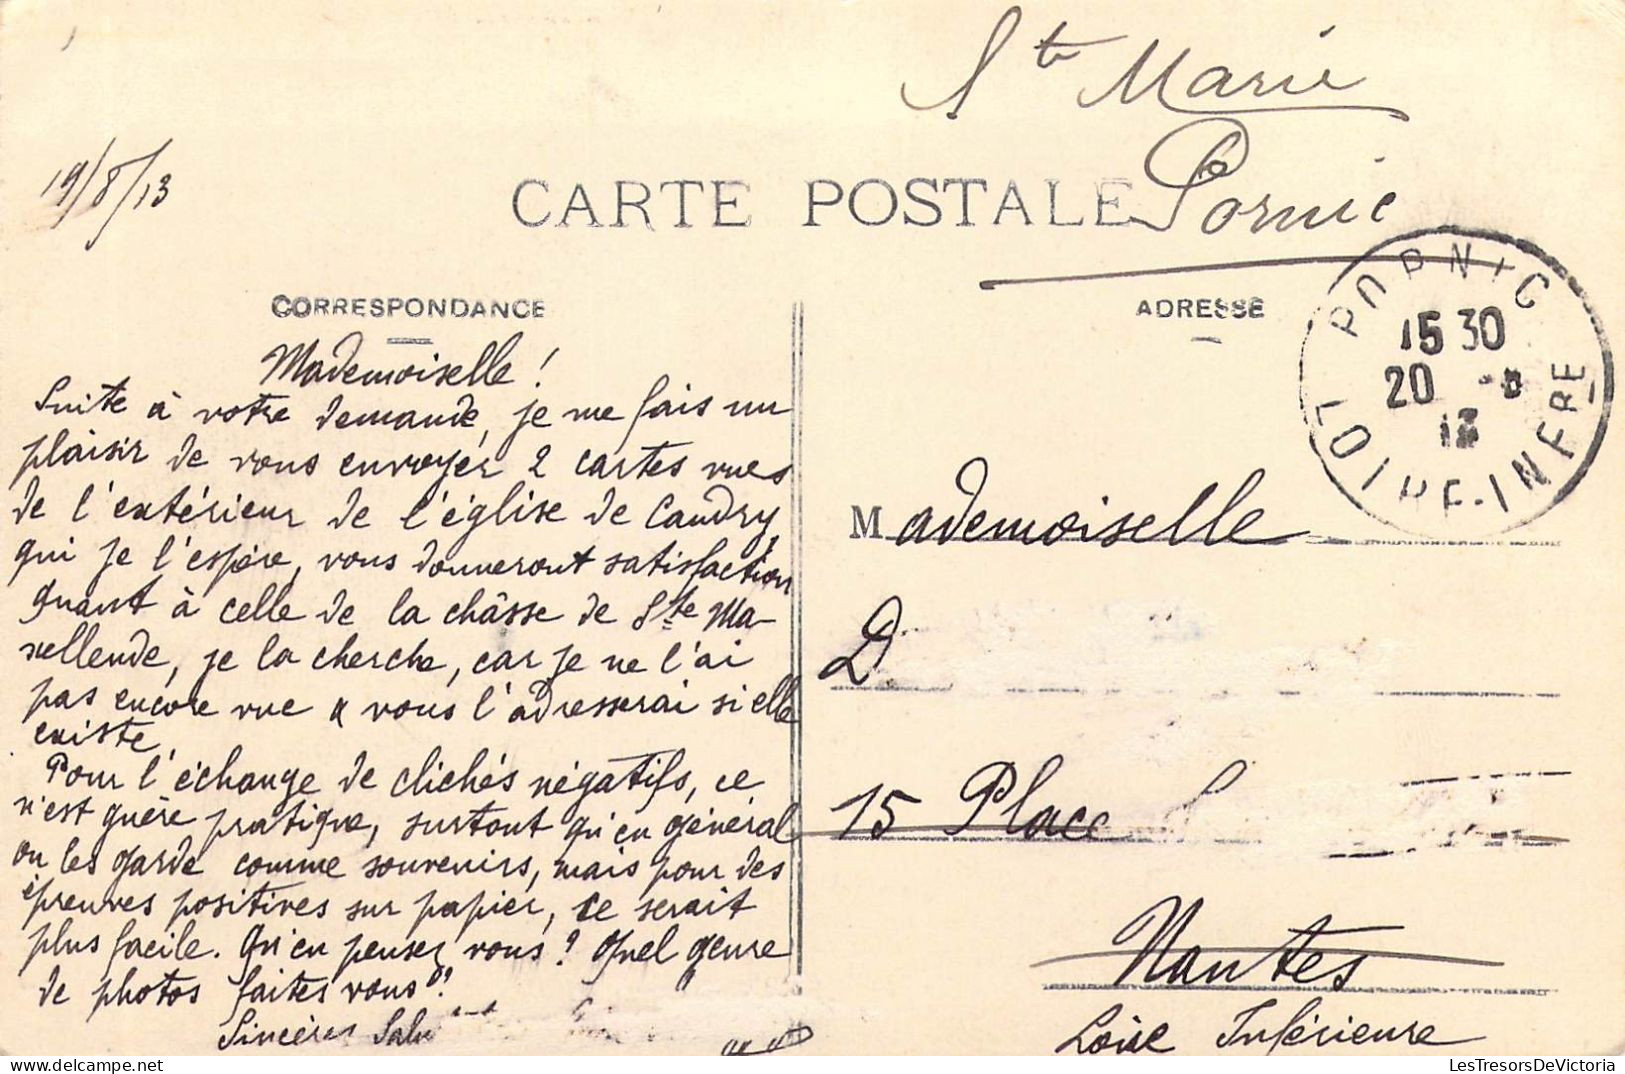 Ste Marie
Pornic
19/8/13
CARTE POSTALE
PORNIC
15 30
20 -8
13
LOIRE-INFRE
CORRESPONDANCE
Mademoiselle !
Suite à votre demande, je me fais un
plaisir de vous envoyer 2 cartes vues
de l'extérieur de l'église de Caudry,
qui je l'espère, vous donneront satisfaction
quant à celle de la châsse de Ste Ma-
xellende, je la cherche, car je ne l'ai
pas encore vue & vous l'adresserai si elle
existe.
Pour l'échange de clichés négatifs, ce
n'est guère pratique, surtout qu'en général
on les garde comme souvenirs, mais pour des
épreuves positives sur papier, ce serait
plus facile. Qu'en pensez vous ? Quel genre
de photos faites vous ?
Sincères Salu
ADRESSE
Mademoiselle
D
15 Place
Nantes
Loire Inférieure
LesTresorsDeVictoria